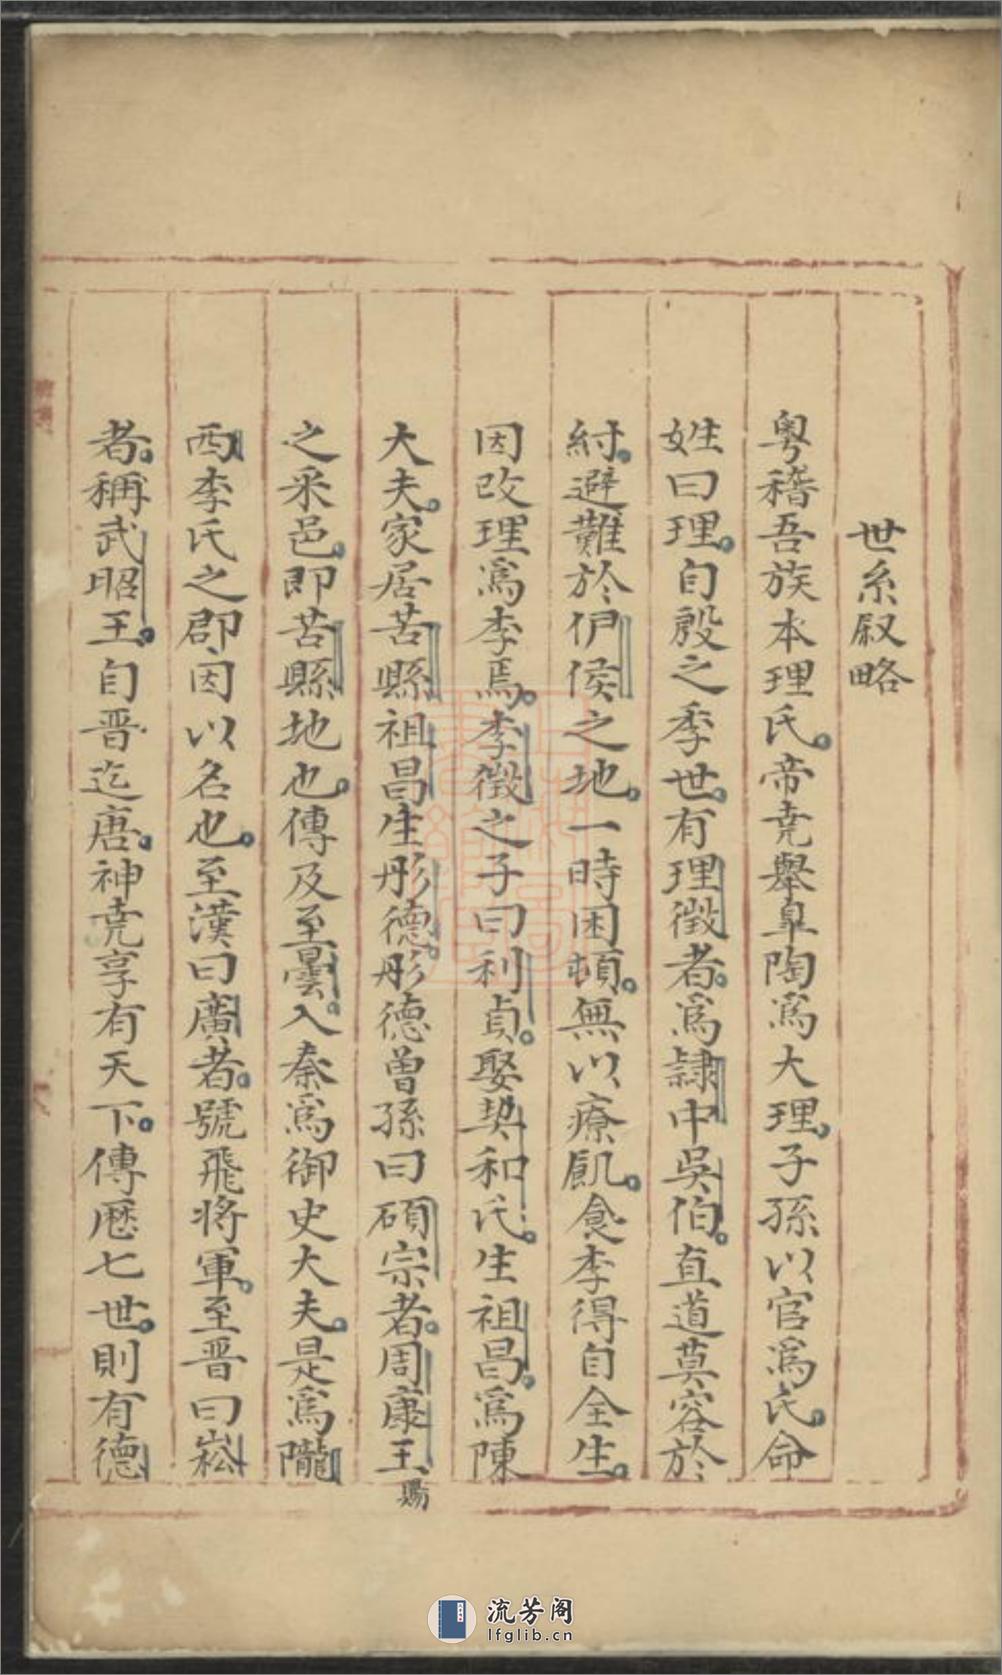 世系叙略
粤稽吾族本理氏帝堯舉臯陶為大理子孫以官為氏命
姓曰理自殷之季世有理徵者為隸中吳伯直道莫容於
紂避難於伊侯之地一時困頓無以療飢食李得自全生
因改理為李焉李徵之子曰利貞娶契和氏生祖昌為陳
大夫家居苦縣祖昌生彤德彤德曾孫曰碩宗者周康王賜
之采邑即苦縣地也傳及至曇入秦為御史大夫是為隴
西李氏之郡因以名也至漢曰廣者號飛將軍至晉曰崧
者稱武昭王自晉迄唐神堯享有天下傳歷七世則有德
流芳阁
lfglib.cn